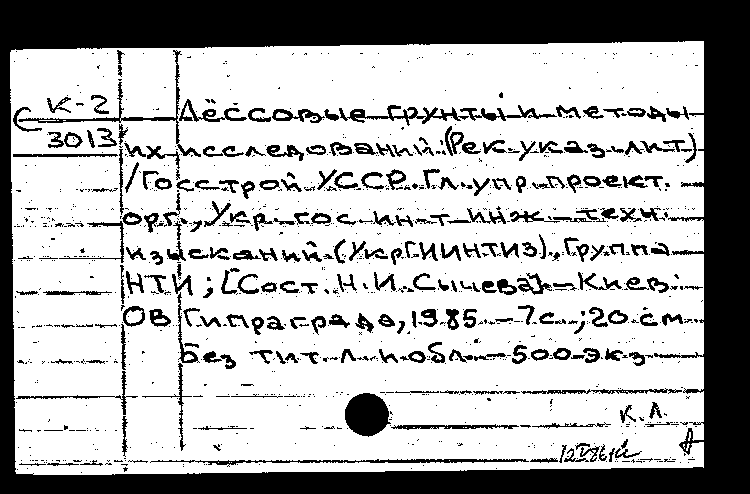 К-2
3013
Лёссовые грунты и методы
их исследований: (Рек. указ. лит)
/Госстрой УССР. Гл. упр. проект.
орг., Укр. гос. ин-т инж.-техн.
изысканий (УкрГИИНТИЗ), Группа
НТИ; [Сост. Н.И. Сычева]. - Киев:
ОВ Гипрограда, 1985. - 7 с.; 20 см
Без тит. л. и обл. - 500 экз
К. Л.